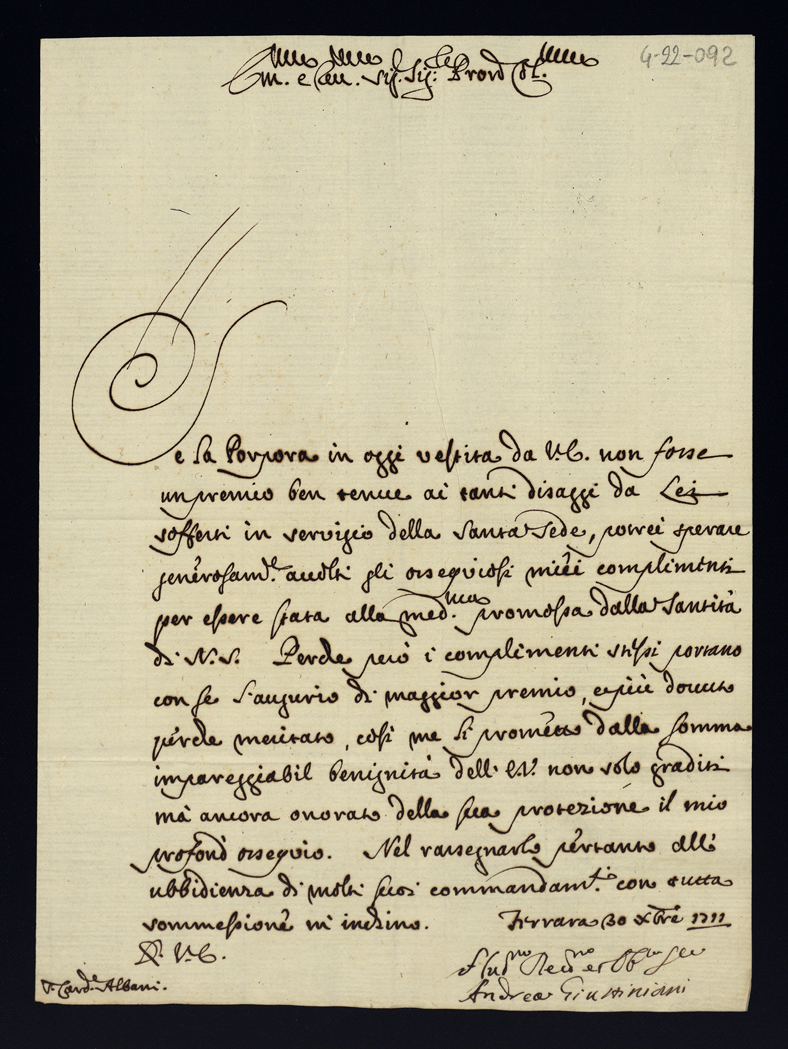 4-22-092
Em.mo e Rev.mo Sig.r Sig.r e Pron Col.mo
Se la Porpora in oggi vestita da V.E. non fosse
un premio ben tenue ai tanti disaggi da Lei
sofferti in servigio della Santa Sede, potrei sperare
generosam.te accolti gli ossequiosi miei complimenti
per essere stata alla med.ma promossa dalla Santità
di N.S. Perche però i complimenti stessi portano
con se l'augurio di maggior premio, e più dovuto
perche meritato, così me li prometto dalla somma
impareggiabil benignità dell'E.V. non solo graditi
mà ancora onorato della sua protezione il mio
profond ossequio. Nel rassegnarlo pertanto all'
ubbidienza di molti suoi commandam.ti con tutta
sommessione m'inchino. Ferrara 30 Xbre 1711
D. V.E.
S. Card.e Albani.
Andrea Giustiniani